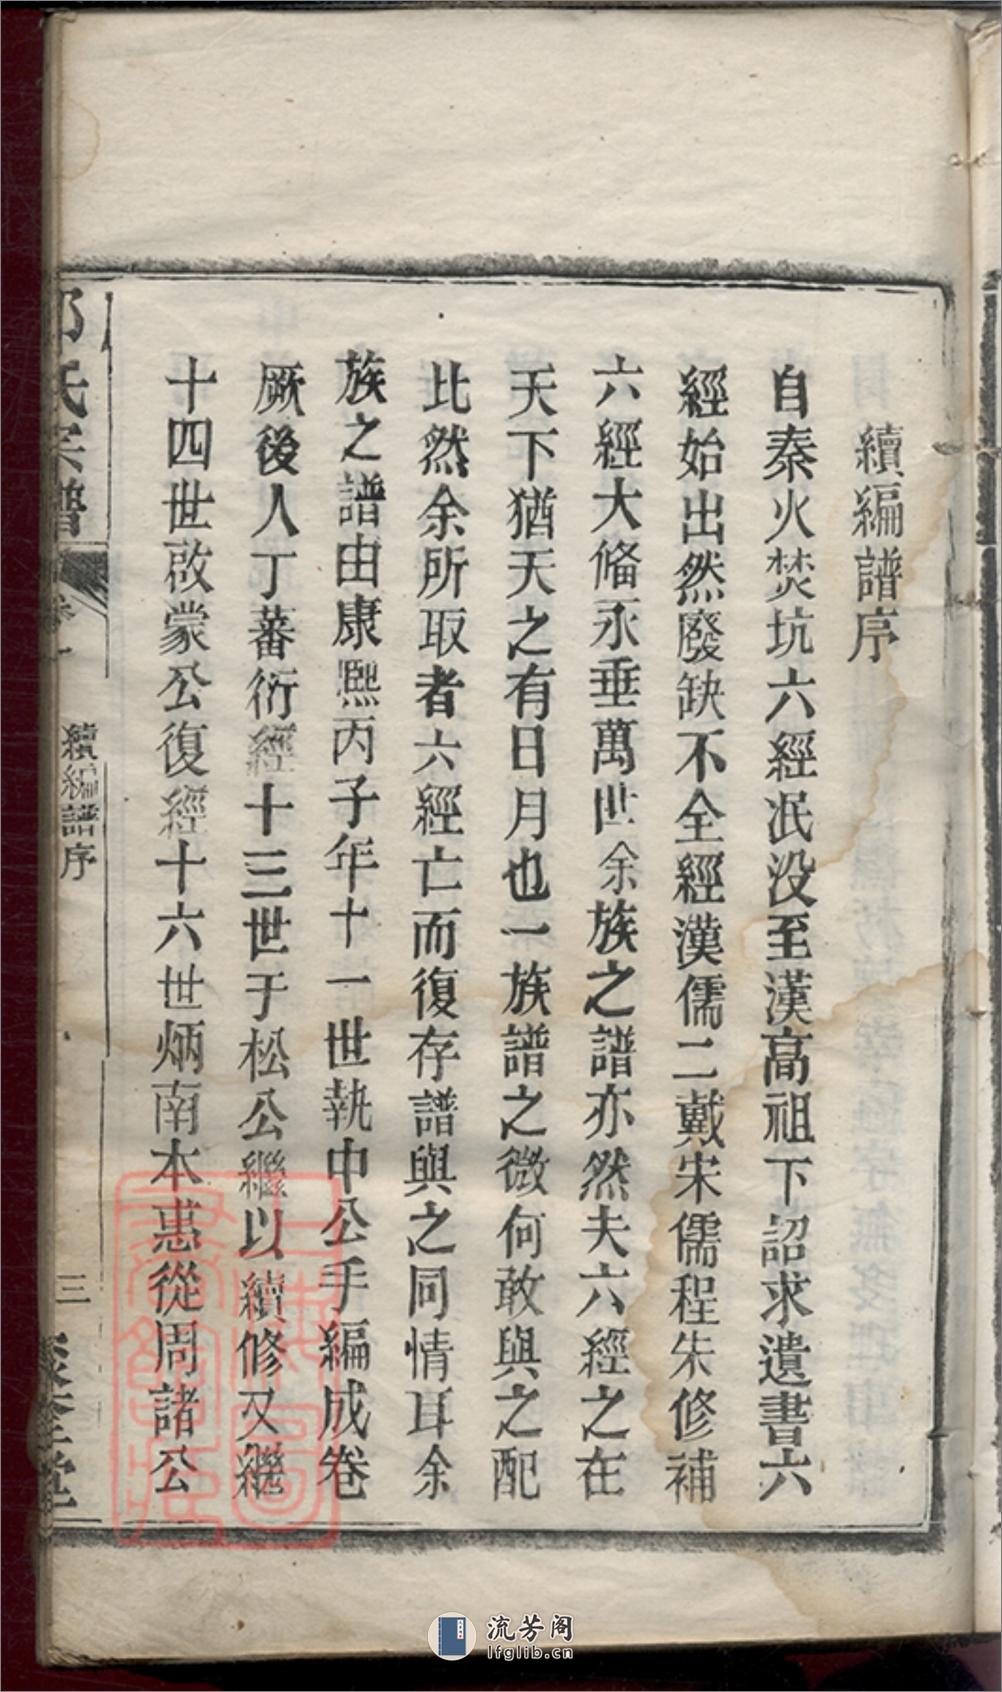 續編譜序
自秦火焚坑六經冺没至漢高祖下詔求遺書六
經始出然廢缺不全經漢儒二戴宋儒程朱修補
六經大僃永垂萬世余族之譜亦然夫六經之在
天下猶天之有日月也一族譜之微何敢與之配
比然余所取者六經亡而復存譜與之同情耳余
族之譜由康熙丙子年十一世執中公手編成卷
厥後人丁蕃衍經十三世于松公繼以續修又繼
十四世啟蒙公復經十六世炳南本惠從周諸公
氏宗譜
卷一
續編譜序
三
堂
上海圖書館藏
流芳阁
lfglib.cn